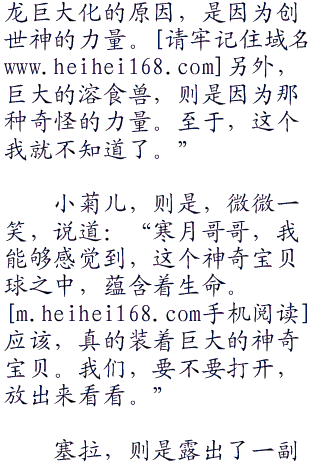 龙巨大化的原因，是因为创
世神的力量。[请牢记住域名
www.heihei168.com]另外，
巨大的溶食兽，则是因为那
种奇怪的力量。至于，这个
我就不知道了。”
小菊儿，则是，微微一
笑，说道：“寒月哥哥，我
能够感觉到，这个神奇宝贝
球之中，蕴含着生命。
[m.heihei168.com手机阅读]
应该，真的装着巨大的神奇
宝贝。我们，要不要打开，
放出来看看。”
塞拉，则是露出了一副